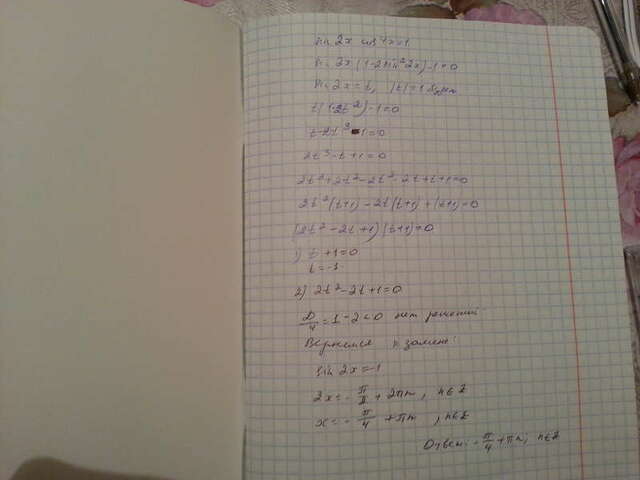 sin 2x cos 4x=1
sin 2x (1-2sin²2x)-1=0
sin 2x=t, |t|≤1
t(1-2t²)-1=0
t-2t³-1=0
2t³-t+1=0
2t³+2t²-2t²-2t+t+1=0
2t²(t+1)-2t(t+1)+(t+1)=0
(2t²-2t+1)(t+1)=0
1) t+1=0
t=-1
2) 2t²-2t+1=0
D/4=1-2<0 нет решений
Вернемся к замене:
sin 2x=-1
2x=-π/2+2πn, n∈Z
x=-π/4+πn, n∈Z
Ответ: -π/4+πn, n∈Z